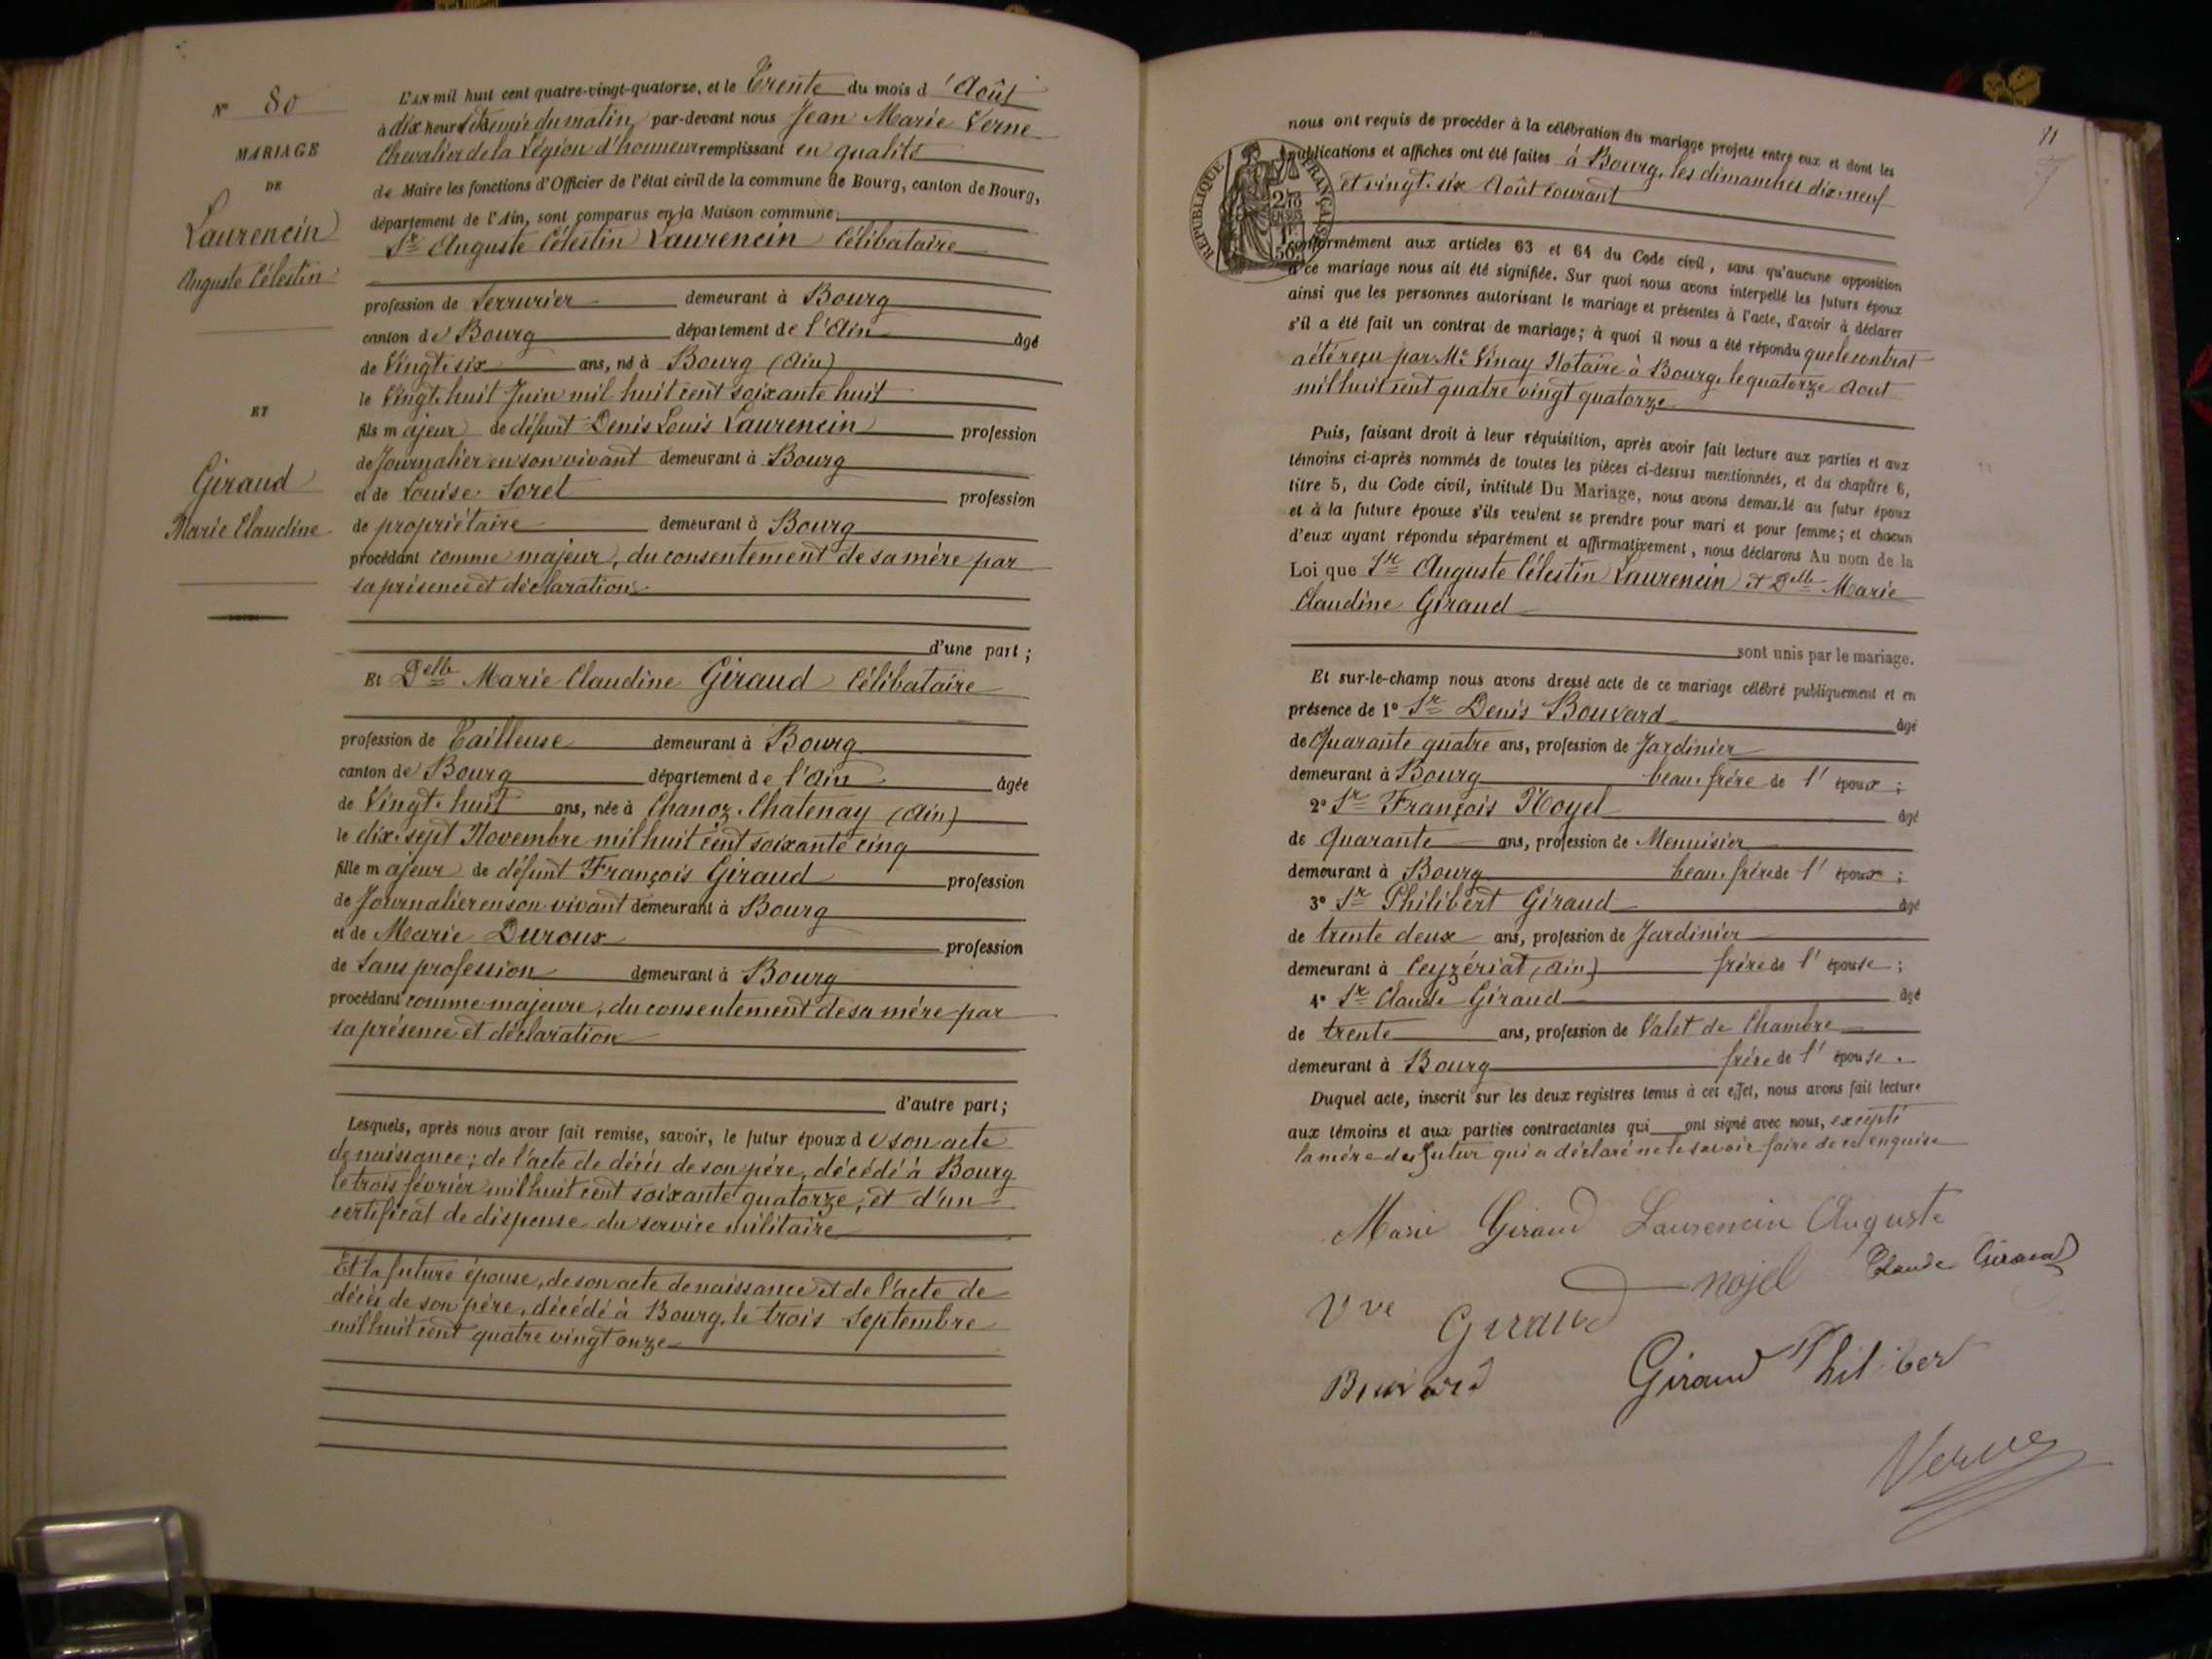 N° 80
MARIAGE
DE
Laurencin
Auguste Célestin
ET
Giraud
Marie Claudine
L'AN mil huit cent quatre-vingt-quatorze, et le Trente du mois d'Août
à dix heures du matin, par-devant nous Jean Marie Verne
Chevalier de la Légion d'honneur remplissant en qualité
de Maire les fonctions d'Officier de l'état civil de la commune de Bourg, canton de Bourg,
département de l'Ain, sont comparus en la Maison commune
Sr Auguste Célestin Laurencin Célibataire
profession de Serrurier demeurant à Bourg
canton de Bourg département de l'Ain âgé
de Vingt-six ans, né à Bourg (Ain)
le Vingt-huit Juin mil huit cent soixante huit
fils majeur de défunt Denis Louis Laurencin profession
de Journalier en son vivant demeurant à Bourg
et de Louise Soret profession
de propriétaire demeurant à Bourg
procédant comme majeur, du consentement de sa mère par
sa présence et déclaration
d'une part;
Et Delle Marie Claudine Giraud Célibataire
profession de Tailleuse demeurant à Bourg
canton de Bourg département de l'Ain âgée
de Vingt-huit ans, née à Chanoz-Chatenay (Ain)
le dix-sept Novembre mil huit cent soixante cinq
fille majeur de défunt François Giraud profession
de Journalier en son vivant demeurant à Bourg
et de Marie Duroux profession
de Sans profession demeurant à Bourg
procédant comme majeure, du consentement de sa mère par
sa présence et déclaration
d'autre part;
Lesquels, après nous avoir fait remise, savoir, le futur époux de son acte
de naissance; de l'acte de décès de son père, décédé à Bourg
le trois février mil huit cent soixante quatorze, et d'un
certificat de dispense du service militaire
Et la future épouse, de son acte de naissance et de l'acte de
décès de son père, décédé à Bourg, le trois Septembre
mil huit cent quatre vingt onze
11
nous ont requis de procéder à la célébration du mariage projeté entre eux et dont les
publications et affiches ont été faites à Bourg, les dimanches dix-neuf
et vingt-six Août courant
REPUBLIQUE FRANÇAISE
conformément aux articles 63 et 64 du Code civil, sans qu'aucune opposition
à ce mariage nous ait été signifiée. Sur quoi nous avons interpellé les futurs époux
ainsi que les personnes autorisant le mariage et présentes à l'acte, d'avoir à déclarer
s'il a été fait un contrat de mariage; à quoi il nous a été répondu que le contrat
a été reçu par Me Vinay Notaire à Bourg, le quatorze Aout
mil huit cent quatre vingt quatorze
Puis, faisant droit à leur réquisition, après avoir fait lecture aux parties et aux
témoins ci-après nommés de toutes les pièces ci-dessus mentionnées, et du chapitre 6,
titre 5, du Code civil, intitulé Du Mariage, nous avons demandé au futur époux
et à la future épouse s'ils veulent se prendre pour mari et pour femme; et chacun
d'eux ayant répondu séparément et affirmativement, nous déclarons Au nom de la
Loi que Sr Auguste Célestin Laurencin et Delle Marie
Claudine Giraud
sont unis par le mariage.
Et sur-le-champ nous avons dressé acte de ce mariage célébré publiquement et en
présence de 1° Sr Denis Bouvard âgé
de Quarante quatre ans, profession de Jardinier
demeurant à Bourg beau-frère de l'époux;
2° Sr François Noyel âgé
de Quarante ans, profession de Menuisier
demeurant à Bourg beau-frère de l'époux;
3° Sr Philibert Giraud âgé
de trente deux ans, profession de Jardinier
demeurant à Ceyzériat (Ain) frère de l'épouse;
4° Sr Claude Giraud âgé
de trente ans, profession de Valet de Chambre
demeurant à Bourg frère de l'épouse.
Duquel acte, inscrit sur les deux registres tenus à cet effet, nous avons fait lecture
aux témoins et aux parties contractantes qui ont signé avec nous, excepté
la mère du futur qui a déclaré ne le savoir faire de ce enquise
Marie Giraud Laurencin Auguste
nojel Claude Giraud
Vve Giraud
Bouvard Giraud Philiber
Verne